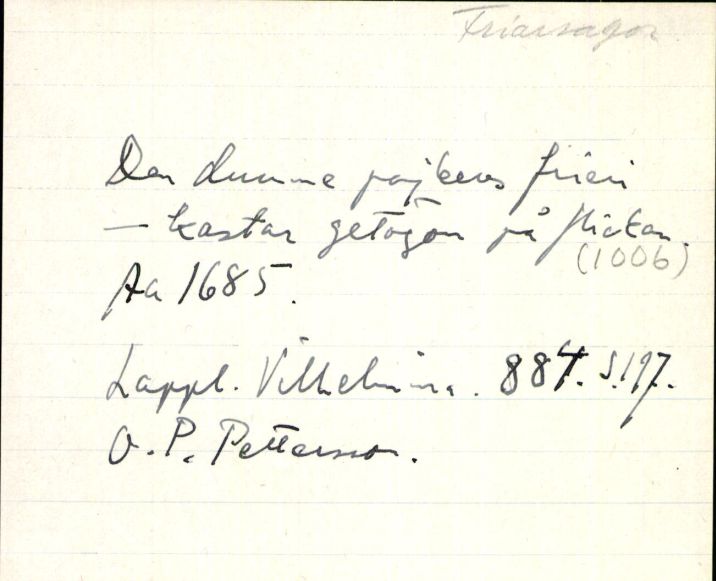 Friarsagor
Den dumme pojkens frieri
— kastar getögon på flickan.
(1006)
Aa 1685.
Lappl. Vilhelmina. 884. S.197.
O. P. Pettersson.